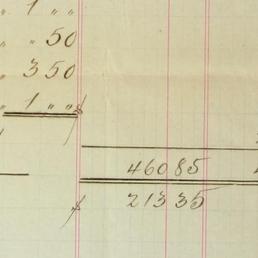 " 1 " "
" " 50
" 3 50
" 1 " "
460 85
$ 213 35